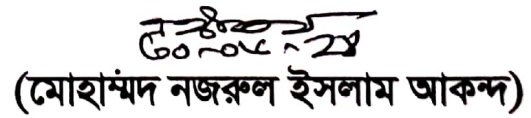 (মোহাম্মদ নজরুল ইসলাম আকন্দ)